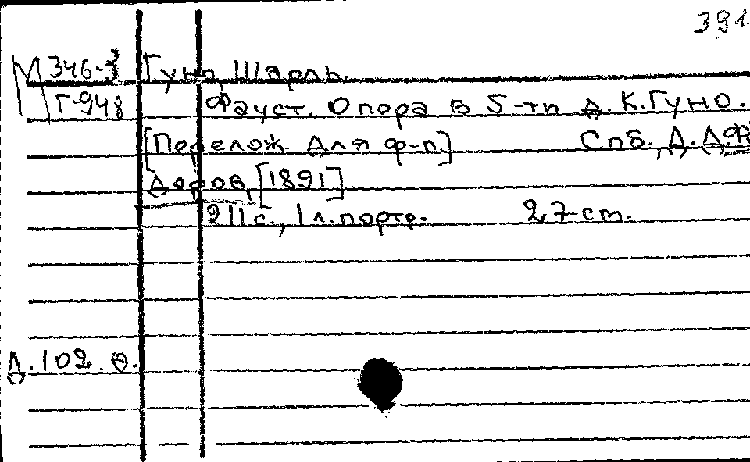 391
М 346-3 Гуно, Шарль.
Г-948 Фауст. Опера в 5-ти д. К. Гуно.
[Перелож. для ф-п.] Спб.,
[1891]
211 с., 1 л. портр. 27 cm.
Д. 102. О.